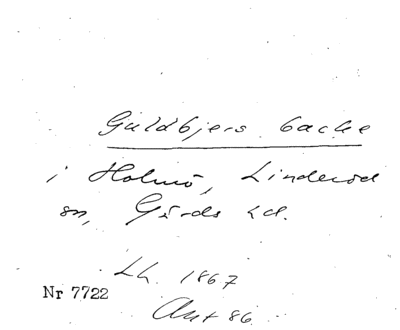 Guldbjers backe
i Holmö, Linderöd
sn, Gärds hd.
Lh. 1867
Nr 7722
Ant 86.